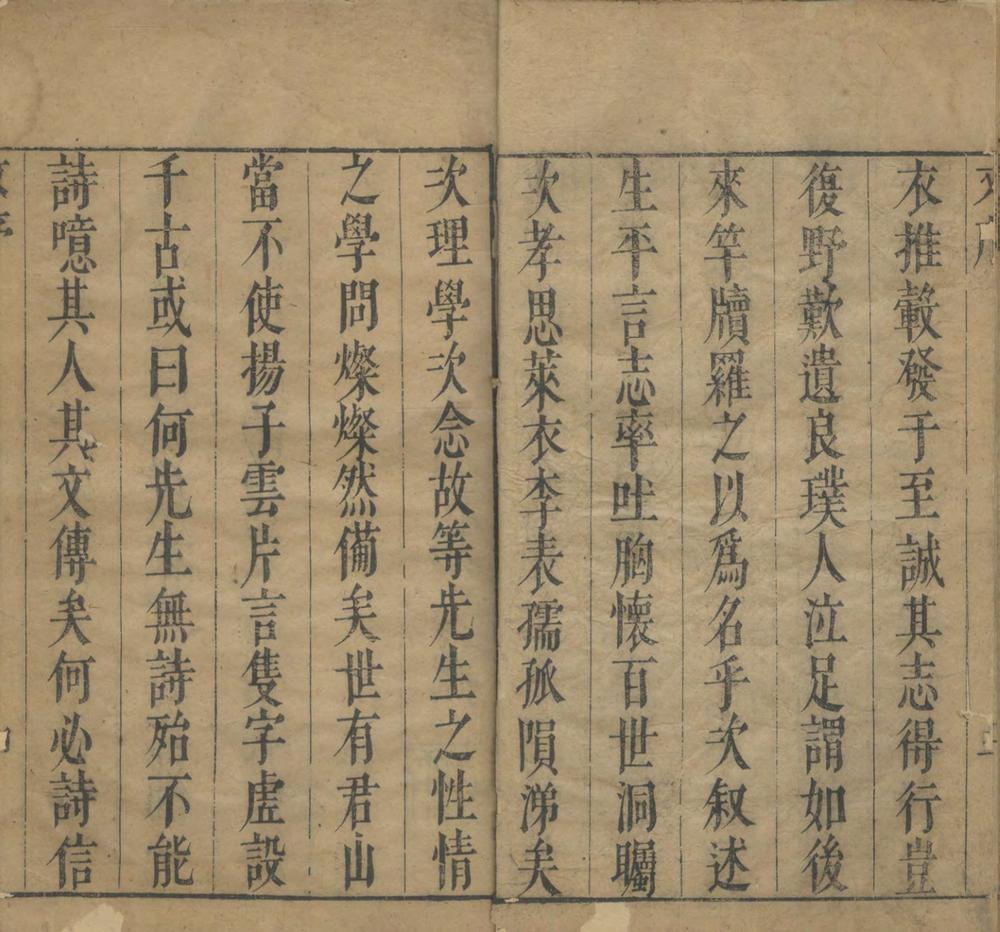 衣推轂發于至誠其志得行豈
復野歎遺良璞人泣足謂如後
來竿牘羅之以爲名乎次叙述
生平言志率吐胸懷百世洞矚
次孝思萊衣李表孺孤隕涕矣
次理學次念故等先生之性情
之學問燦燦然備矣世有君山
當不使揚子雲片言隻字虛設
千古或曰何先生無詩殆不能
詩噫其人其文傳矣何必詩信